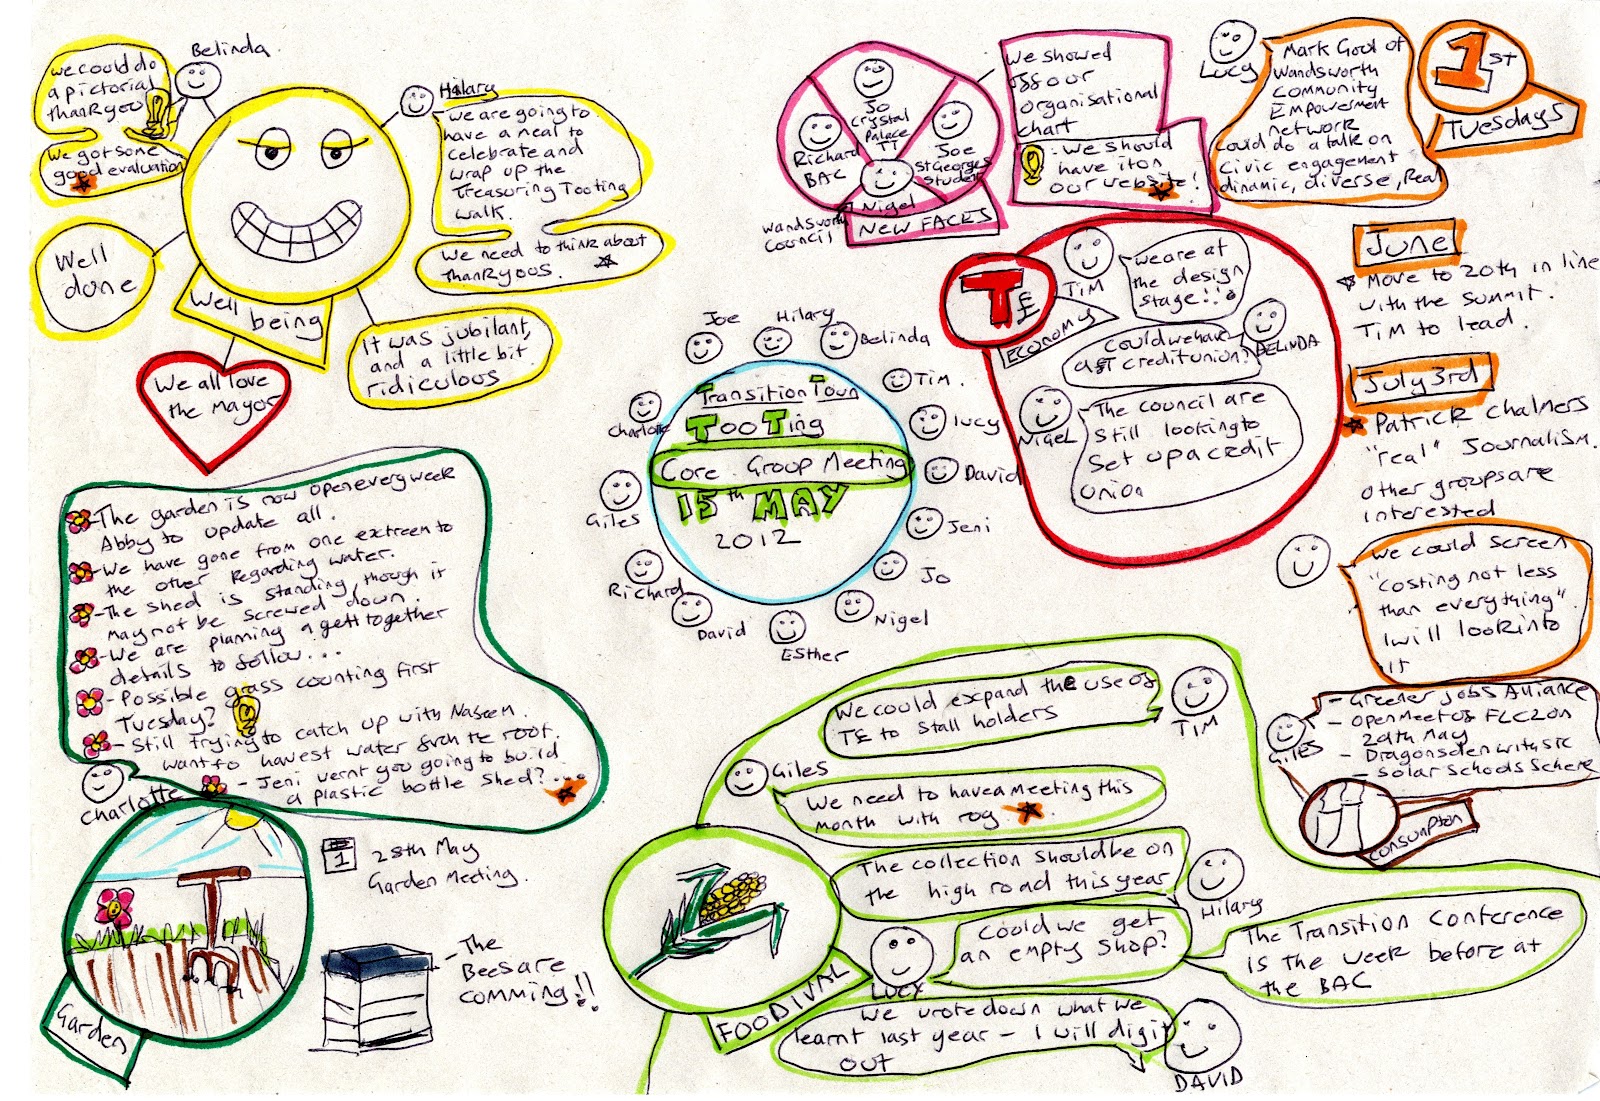 Belinda.
we could do
a pictorial
thankyou
We got some
good evaluation
Hilary
we are going to
have a meal to
celebrate and
wrap up the
Treasuring Tooting
walk.
We need to think about
thankyous.
Well
done
Well
being
It was jubilant,
and a little bit
ridiculous
We all love
the Mayor
Jo
Crystal
Palace
TT
Richard
BAC
Joe
St Georges
Student
Nigel
Wandsworth
Council
NEW FACES
we showed
off our
organisational
chart
- We should
have it on
our website!
Lucy
Mark Gool of
Wandsworth
Community
Empowerment
network
could do a talk on
Civic engagement
dinamic, diverse, Real
1st
Tuesdays
June
Move to 20th in line
with the summit.
Tim to lead.
July 3rd
Patrick Chalmers
"real" Journalism.
other groups are
interested
We could screen
"costing not less
than everything"
I will look into
it
TE
ECONOMY
Tim
we are at
the design
stage!!
Could we have
a credit union?
BELINDA
NIGEL
The council are
still looking to
set up a credit
union
Joe
Hilary
Belinda
Tim.
Lucy
David
Jeni
Jo
Nigel
Esther
David
Richard
Giles
Charlotte
Transition Town
Tooting
Core Group Meeting
15th MAY
2012
- The garden is now open every week
Abby to update all.
- We have gone from one extreem to
the other regarding water.
- The shed is standing, though it
may not be screwed down.
- We are planning a gett together
details to follow...
- Possible grass counting first
Tuesday?
- Still trying to catch up with Naseem.
want to havest water from the roof.
- Jeni wernt you going to build
a plastic bottle shed?...
Charlotte
Garden
1
28th May
Garden Meeting.
- The
Bees are
comming!!
We could expand the use of
TE to stall holders
Tim
Giles
We need to have a meeting this
month with rog
The collection should be on
the high road this year
Hilary
Could we get
an empty shop?
Lucy
The Transition Conference
is the week before at
the BAC
We wrote down what we
learnt last year - I will dig it
out
DAVID
FOODIVAL
- Greener jobs Alliance
- Open Meet of FLC2 on
29th May
- Dragons den with SIC
- Solar Schools Scheme
Giles
Consumption